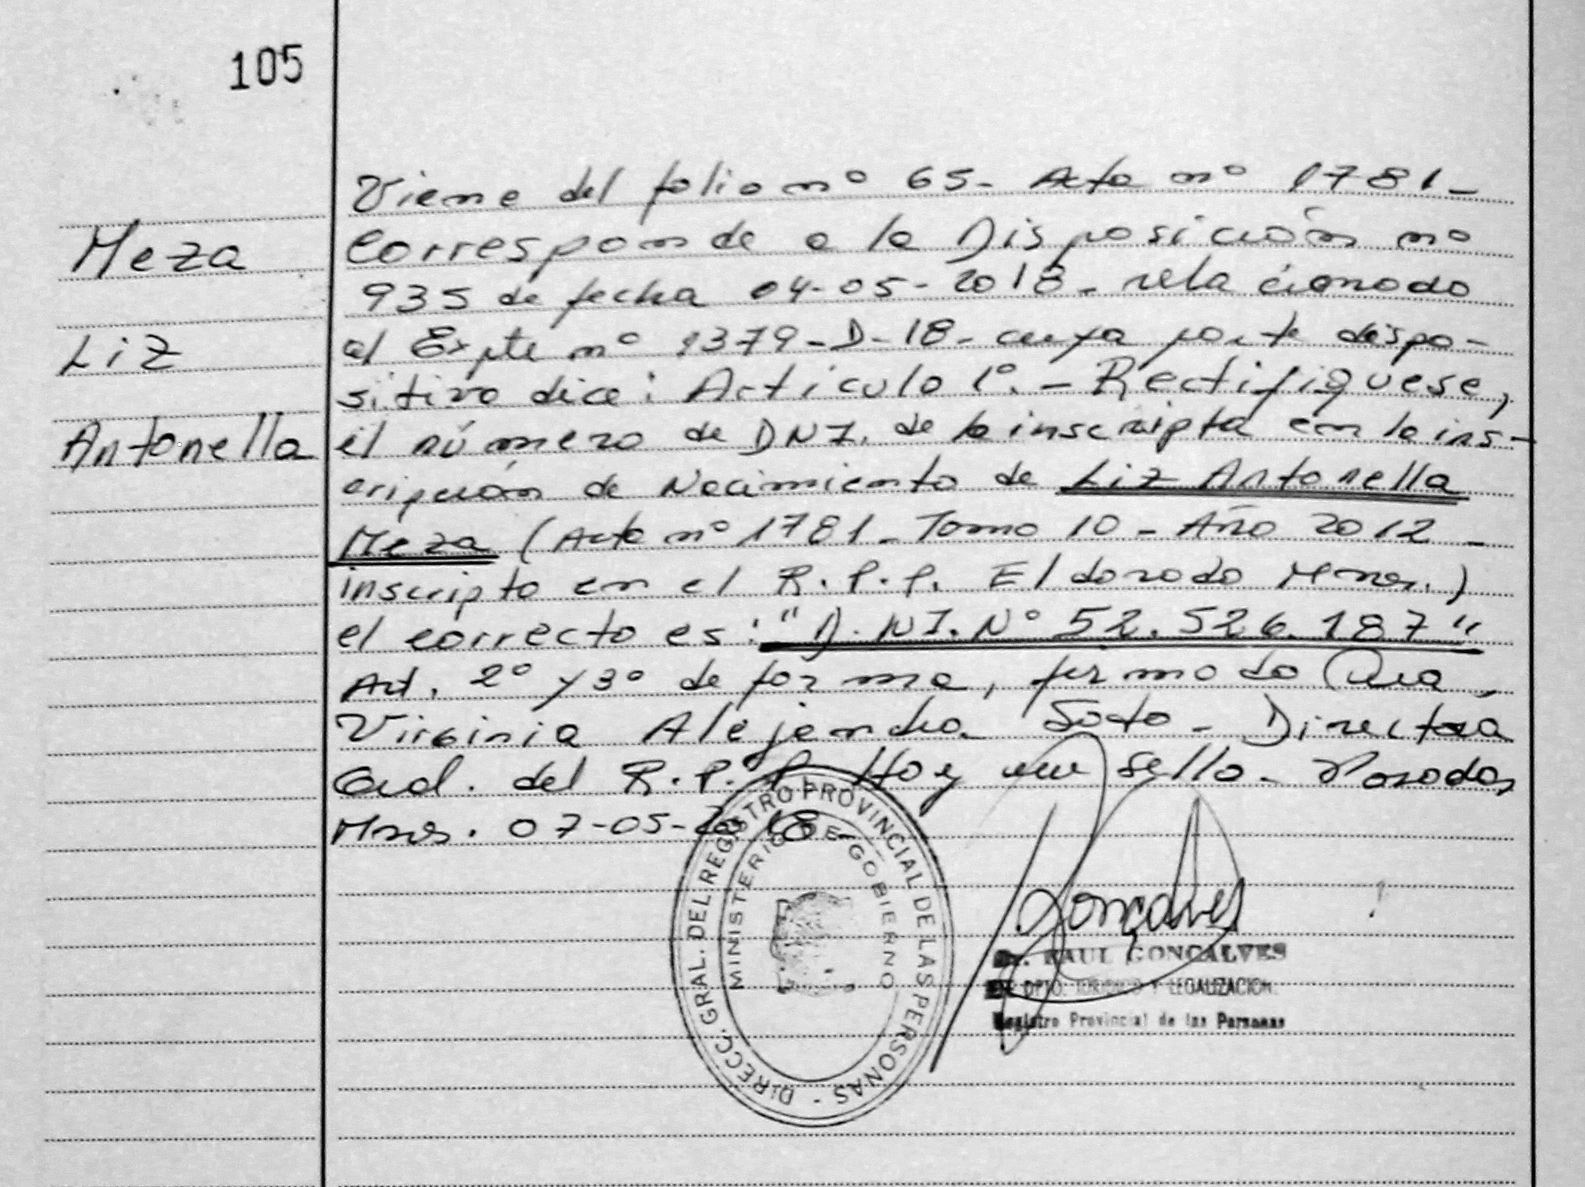 105
Meza
Liz
Antonella
Viene del folio nº 65- Acta nº 1781-
Corresponde a la Disposición nº
935 de fecha 04-05-2018- relacionado
al Expte nº 1379-D-18- cuya parte dispo-
sitiva dice: Artículo 1º.- Rectifiquese,
el número de DNI. de la inscripta en la ins-
cripción de Nacimiento de Liz Antonella
Meza (Acta nº 1781- Tomo 10- Año 2012-
inscripta en el R.P.P. Eldorado Mnes.)
el correcto es: "D.NI.Nº 52.526.187"
Art. 2º y 3º de forma, firmado
Virginia Alejandra Soto- Directora
Gral. del R.P.P. Hay un sello- Posadas,
Mnes. 07-05-2018-
DIRECC. GRAL. DEL REGISTRO PROVINCIAL DE LAS PERSONAS -
MINISTERIO DE GOBIERNO
Gonçalves
Dr. RAUL GONCALVES
DPTO. Y LEGALIZACION
Registro Provincial de las Personas